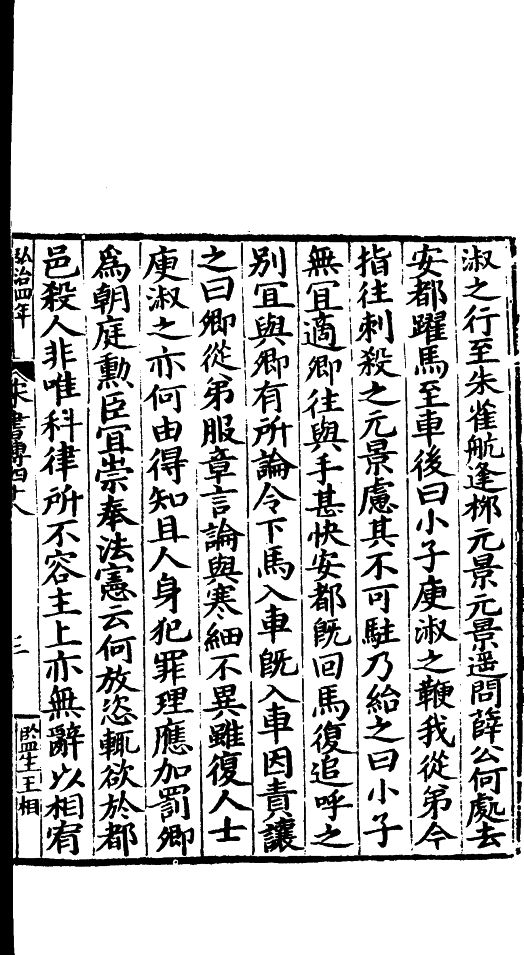 淑之行至朱雀航逢桞元景元景遥問薛公何處去
安都躍馬至車後曰小子庾淑之鞭我從弟今
指往刺殺之元景慮其不可駐乃紿之曰小子
無冝適卿往與手甚快安都旣回馬復追呼之
别冝與卿有所論令下馬入車旣入車因責讓
之曰卿從弟服章言論與寒細不異雖復人士
庾淑之亦何由得知且人身犯罪理應加罰卿
爲朝庭勲臣冝崇奉法憲云何放恣輒欲於都
邑殺人非唯科律所不容主上亦無辭以相宥
弘治四年
宋書傳四十八
三
監生王相